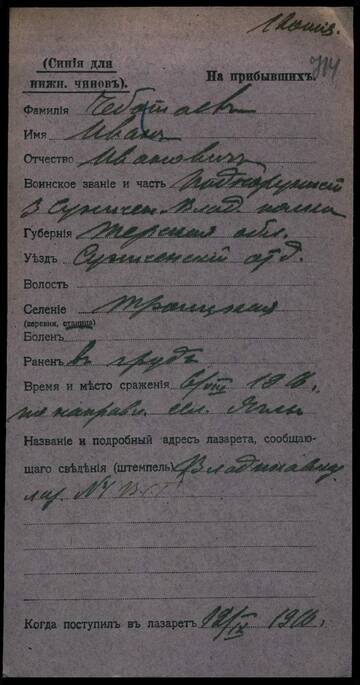 1 копия.
(Синія для
нижн. чиновъ).
На прибывшихъ. 714
Фамилія Чеботаевъ
Имя Иванъ
Отчество Ивановичъ
Воинское званіе и часть Подхорунжій
3 Сунжен. Влад. полка
Губернія Терская обл.
Уѣздъ Сунженскій отд.
Волость
Селеніе Троицкая
(деревня, станица)
Боленъ
Раненъ въ грудь
Время и мѣсто сраженія 6/VIII 1916.
по направл. сел.
Названіе и подробный адресъ лазарета, сообщаю-
щаго свѣдѣнія (штемпель) Владикавказ.
лаз. №1
Когда поступилъ въ лазаретъ 12/IX 1916.